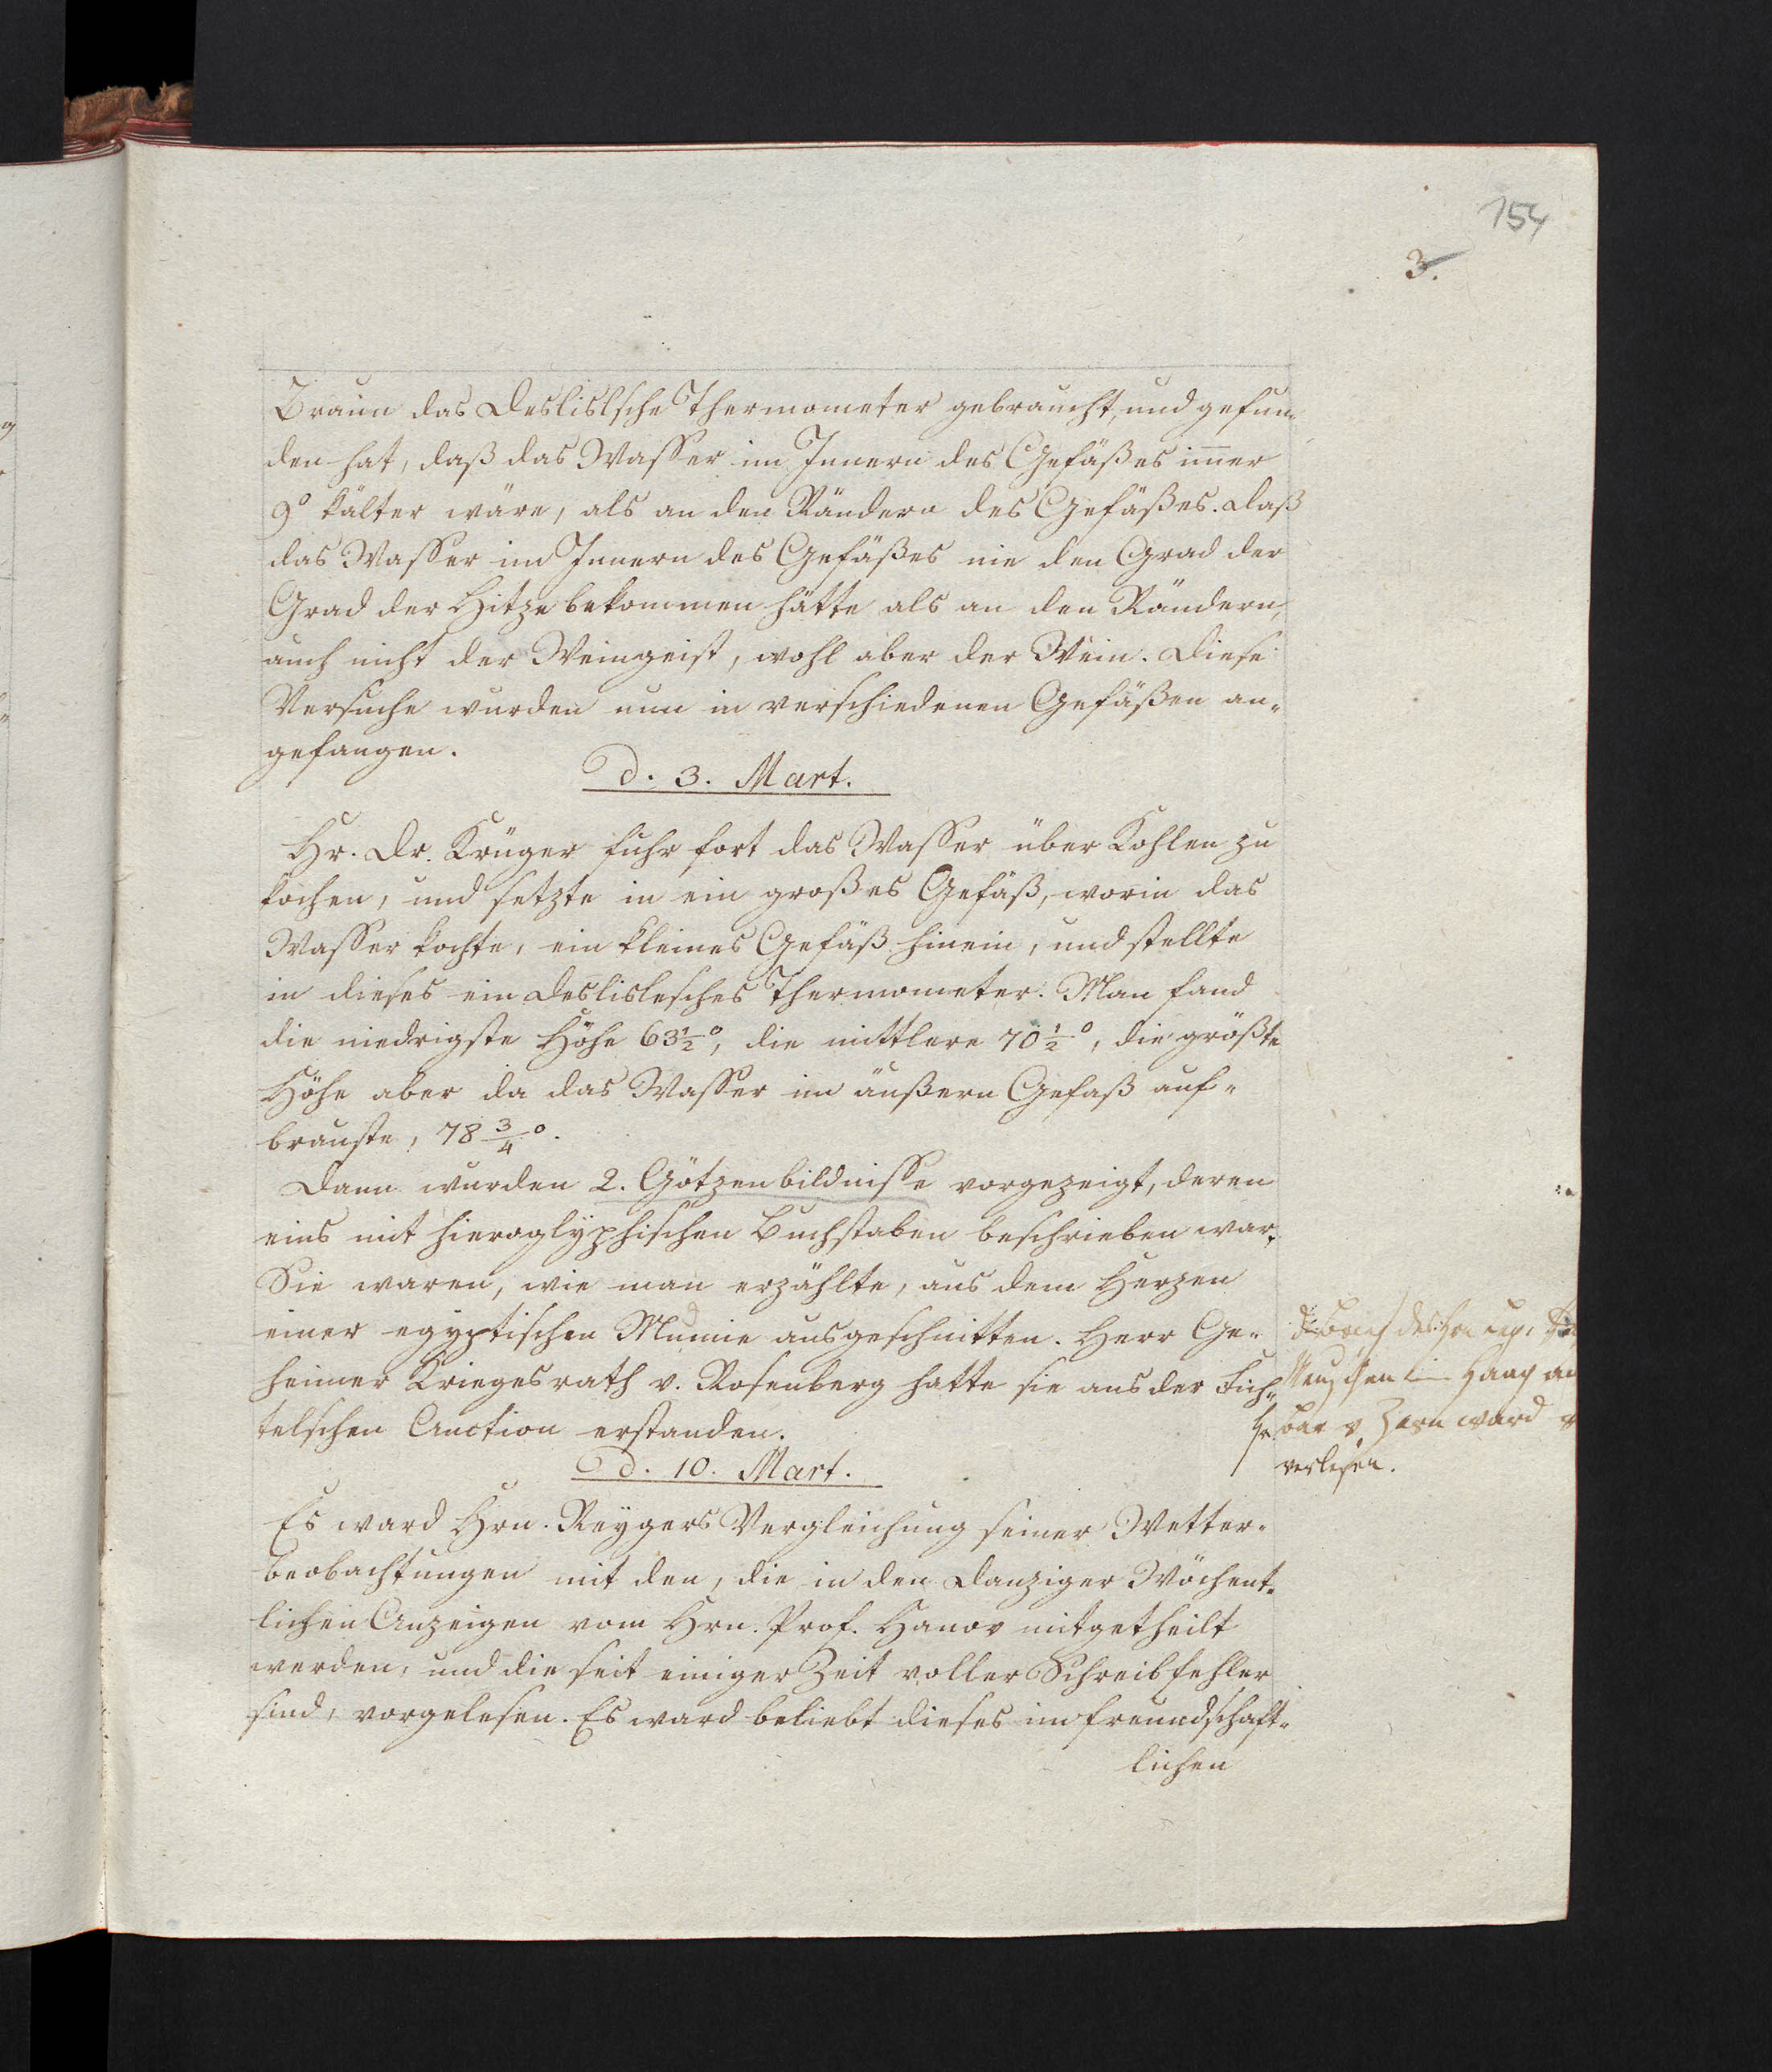 154
3.
Braun das Deslislsche Thermometer gebraucht, und gefun-
den hat, daß das Waßer im Innern des Gefäßes im̄er
9° kälter wäre, als an den Rändern des Gefäßes. Daß
das Waßer im Innern des Gefäßes nie den Grad der
Grad der Hitze bekommen hätte als an den Rändern,
auch nicht der Weingeist, wohl aber der Wein. Diese
Versuche wurden nun in verschiedenen Gefäßen an-
gefangen.
d. 3. Mart.
Hr. Dr. Krüger fuhr fort das Waßer über Kohlen zu
kochen, und setzte in ein großes Gefäß, worin das
Waßer kochte, ein kleines Gefäß hinein, und stellte
in dieses ein Deslislesches Thermometer. Man fand
die niedrigste Höhe 63½°, die mittlere 70½°, die größte
Höhe aber da das Waßer im äußern Gefaß auf-
brauste, 78¾°.
Dann wurden 2. Götzenbildniße vorgezeigt, deren
eins mit hieroglyphischen Buchstaben beschrieben war.
Sie waren, wie man erzählte, aus dem Herzen
einer egyptischen Mumie ausgeschnitten. Herr Ge-
heimer Kriegesrath v. Rosenberg hatte sie aus der Fich-
telschen Auction erstanden.
d. Brief des Hrn
Meuschen im Haag an
Hr Bar v. Zorn ward
verlesen.
d. 10. Mart.
Es ward Hrn. Reygers Vergleichung seiner Wetter-
beobachtungen mit den, die in den Danziger Wöchent-
lichen Anzeigen vom Hrn. Prof. Hanov mitgetheilt
werden, und die seit einiger Zeit voller Schreibfehler
sind, vorgelesen. Es ward beliebt dieses im freundschaft-
lichen